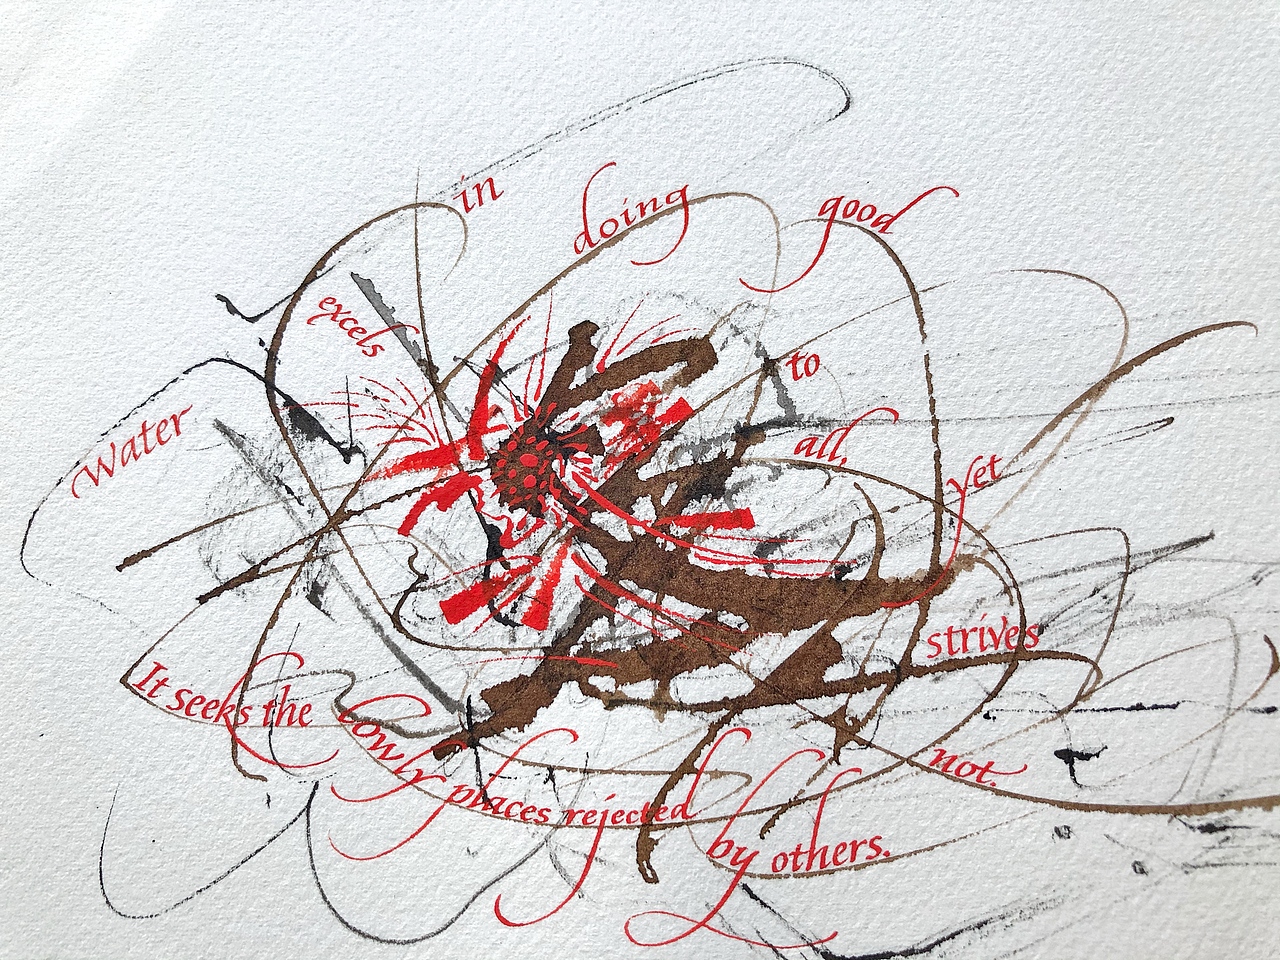 Water excels in doing good to all, yet strives not.
It seeks the lowly places rejected by others.